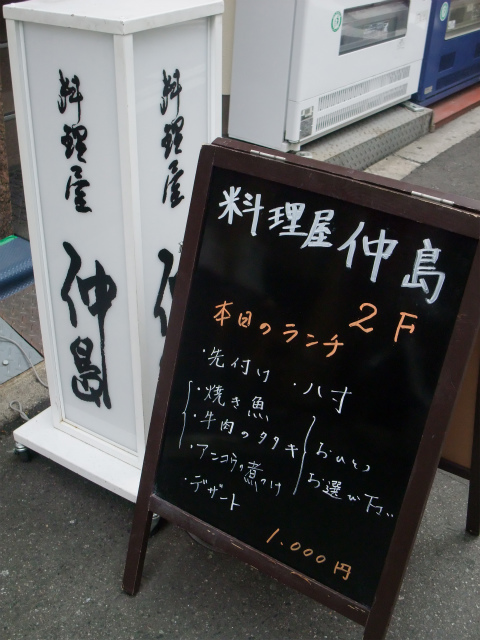 料理屋
仲島
料理屋
料理屋 仲島
2F
本日のランチ
・先付け ・八寸
・焼き魚
・牛肉のタタキ
・アンコウの煮つけ
おひとつ
お選び下さい
・デザート
1.000円